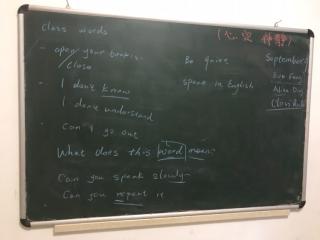 Class words
- open your book.
/close
- I don't know
I don't understand
- Can I go out
What does this word mean?
Can you speak slowly
Can you repeat it
Be quiet
speak in English
September